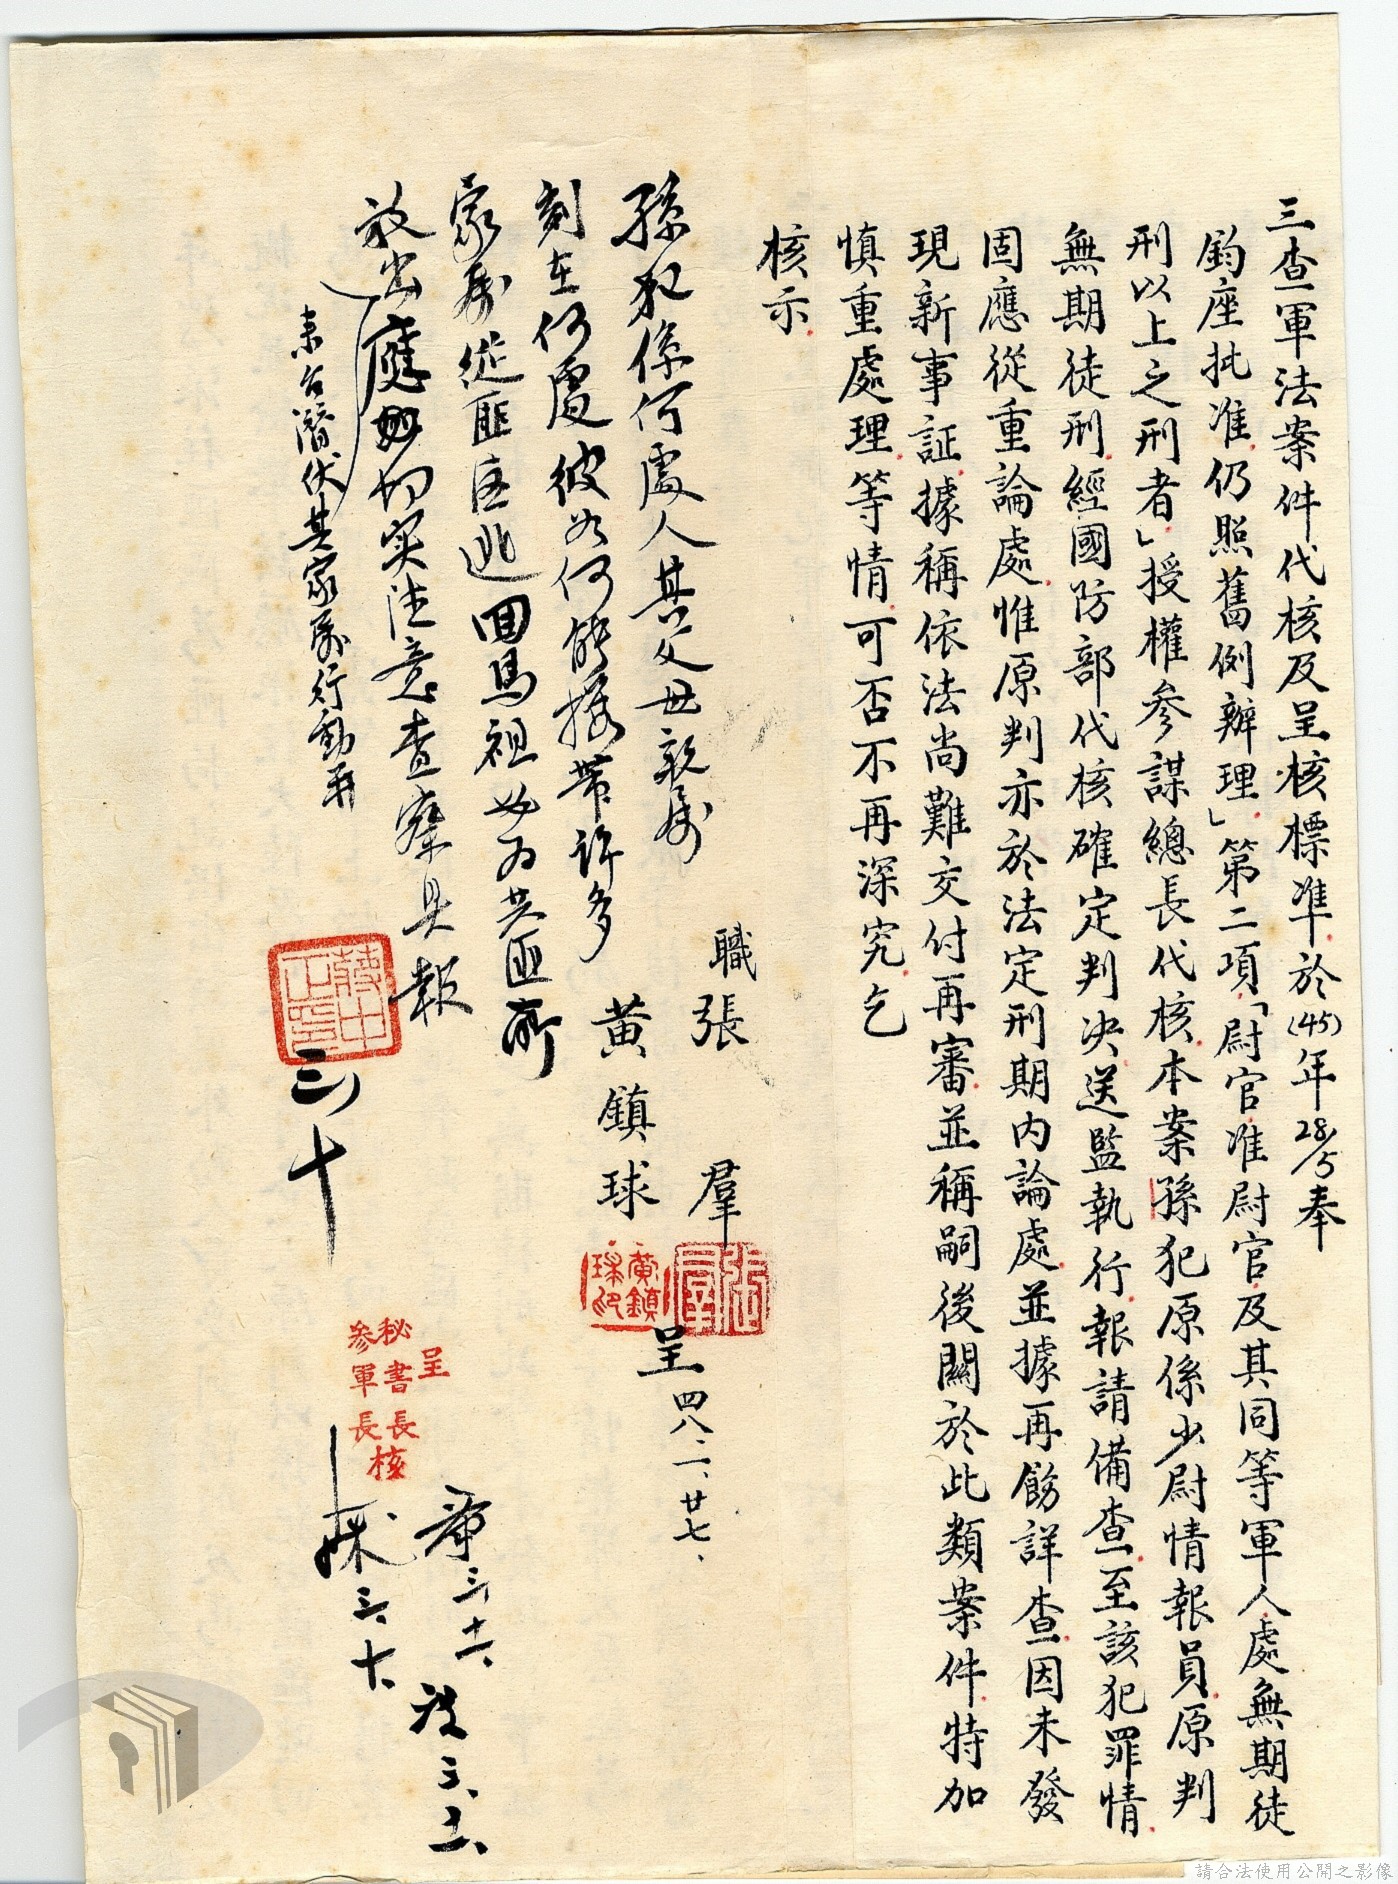 三查軍法案件代核及呈核標準於(45)年28/5奉
鈞座批准仍照舊例辦理」第二項「尉官准尉官及其同等軍人處無期徒
刑以上之刑者」授權參謀總長代核本案孫犯原係少尉情報員原判
無期徒刑經國防部代核確定判決送監執行報請備查至該犯罪情
固應從重論處惟原判亦於法定刑期內論處並據再飭詳查因未發
現新事証據稱依法尚難交付再審並稱嗣後關於此類案件特加
慎重處理等情可否不再深究乞
核示
職張 羣
黃鎮球
呈四八、二、廿七、
孫犯係何處人其父母親屬
刻在何處彼如何能攜帶許多
家屬從匪區逃回馬祖必為共匪所
放出應切实注意查察具報
来台潛伏其家屬行動再
蔣中正印
三十
張羣
黃鎮球印
呈
秘書長
參軍長核
三、十
三、十一